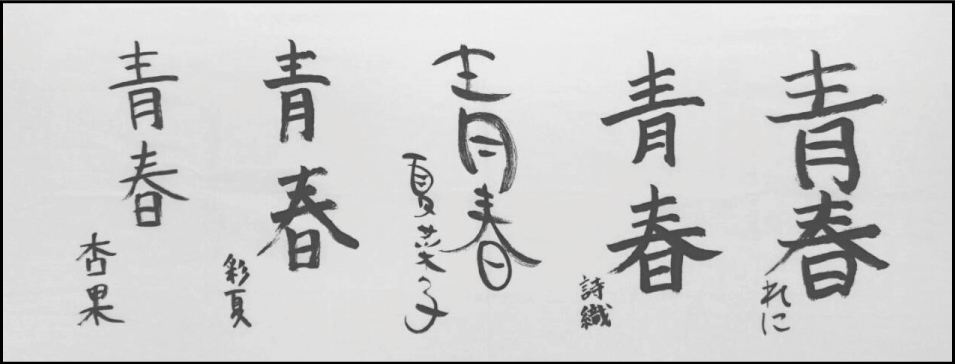 青春
れに
青春
詩織
青春
夏菜子
青春
彩夏
青春
杏果